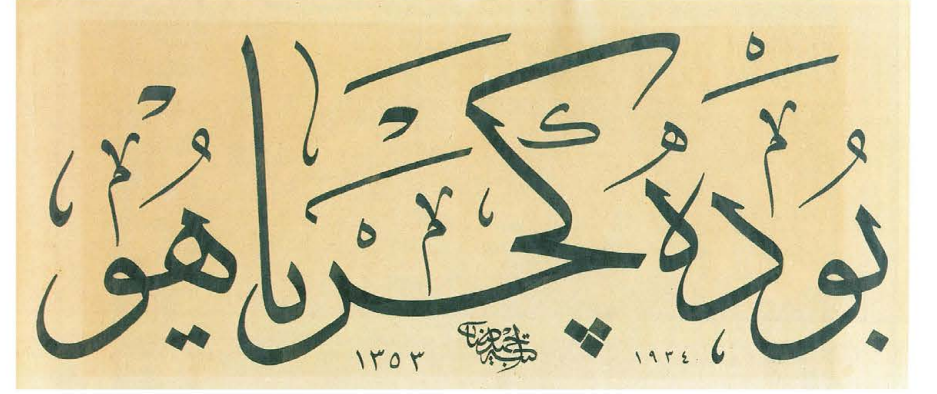 بُو دَه كَچَرْ يَا هُو
١٩٣٤ ١٣٥٣